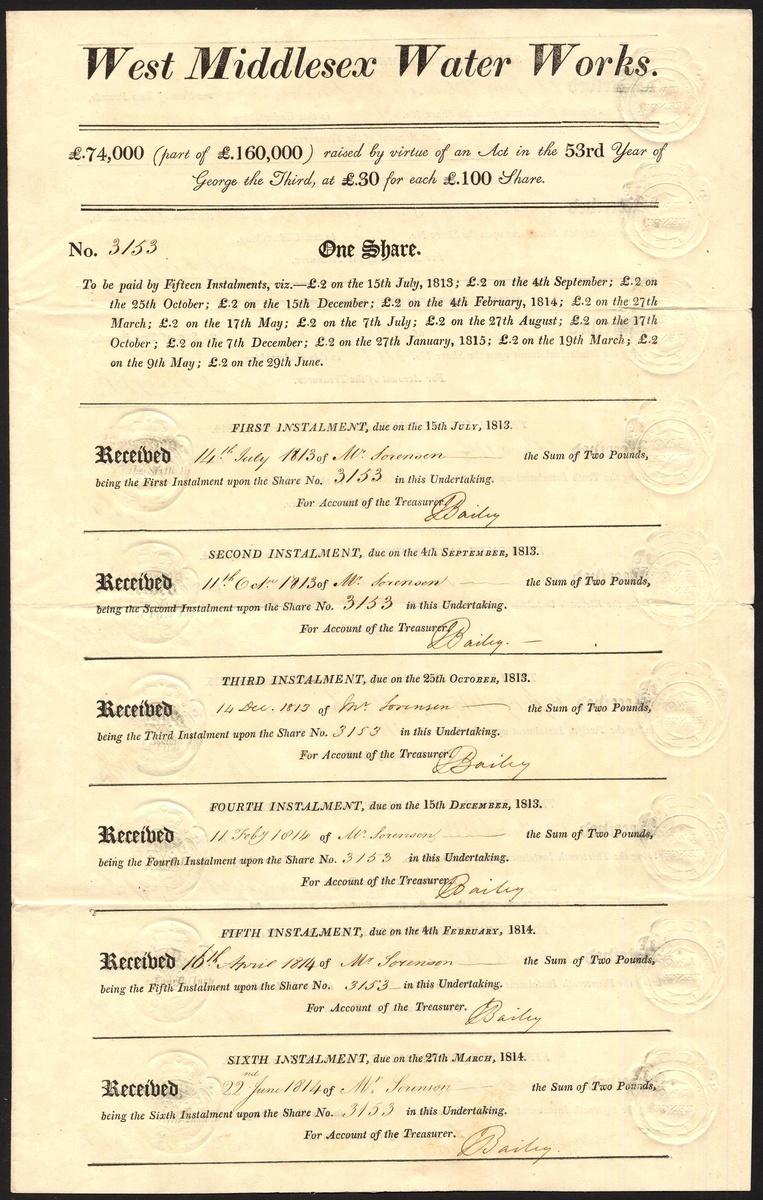 West Middlesex Water Works.
£.74,000 (part of £.160,000) raised by virtue of an Act in the 53rd Year of
George the Third, at £.30 for each £.100 Share.
No. 3153 One Share.
To be paid by Fifteen Instalments, viz.—£.2 on the 15th July, 1813; £.2 on the 4th September; £.2 on
the 25th October; £.2 on the 15th December; £.2 on the 4th February, 1814; £.2 on the 27th
March; £.2 on the 17th May; £.2 on the 7th July; £.2 on the 27th August; £.2 on the 17th
October; £.2 on the 7th December; £.2 on the 27th January, 1815; £.2 on the 19th March; £.2
on the 9th May; £.2 on the 29th June.
FIRST INSTALMENT, due on the 15th JULY, 1813.
Received 14th July 1813 of Mr. Sorensen the Sum of Two Pounds,
being the First Instalment upon the Share No. 3153 in this Undertaking.
For Account of the Treasurer. Bailey
SECOND INSTALMENT, due on the 4th SEPTEMBER, 1813.
Received 11th Octr 1813 of Mr. Sorensen the Sum of Two Pounds,
being the Second Instalment upon the Share No. 3153 in this Undertaking.
For Account of the Treasurer. Bailey.
THIRD INSTALMENT, due on the 25th OCTOBER, 1813.
Received 14 Dec. 1813 of Mr. Sorensen the Sum of Two Pounds,
being the Third Instalment upon the Share No. 3153 in this Undertaking.
For Account of the Treasurer. Bailey
FOURTH INSTALMENT, due on the 15th DECEMBER, 1813.
Received 11 Feby 1814 of Mr. Sorensen the Sum of Two Pounds,
being the Fourth Instalment upon the Share No. 3153 in this Undertaking.
For Account of the Treasurer. Bailey
FIFTH INSTALMENT, due on the 4th FEBRUARY, 1814.
Received 16th April 1814 of Mr Sorenson the Sum of Two Pounds,
being the Fifth Instalment upon the Share No. 3153 in this Undertaking.
For Account of the Treasurer. Bailey
SIXTH INSTALMENT, due on the 27th MARCH, 1814.
Received 22nd June 1814 of Mr Sorenson the Sum of Two Pounds,
being the Sixth Instalment upon the Share No. 3153 in this Undertaking.
For Account of the Treasurer. Bailey.